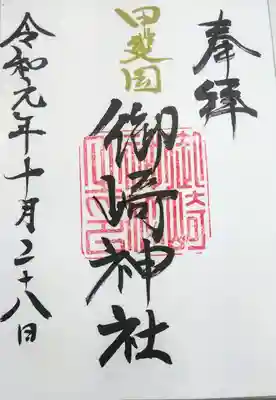 奉拝
甲斐国
御崎神社
令和元年十月二十八日